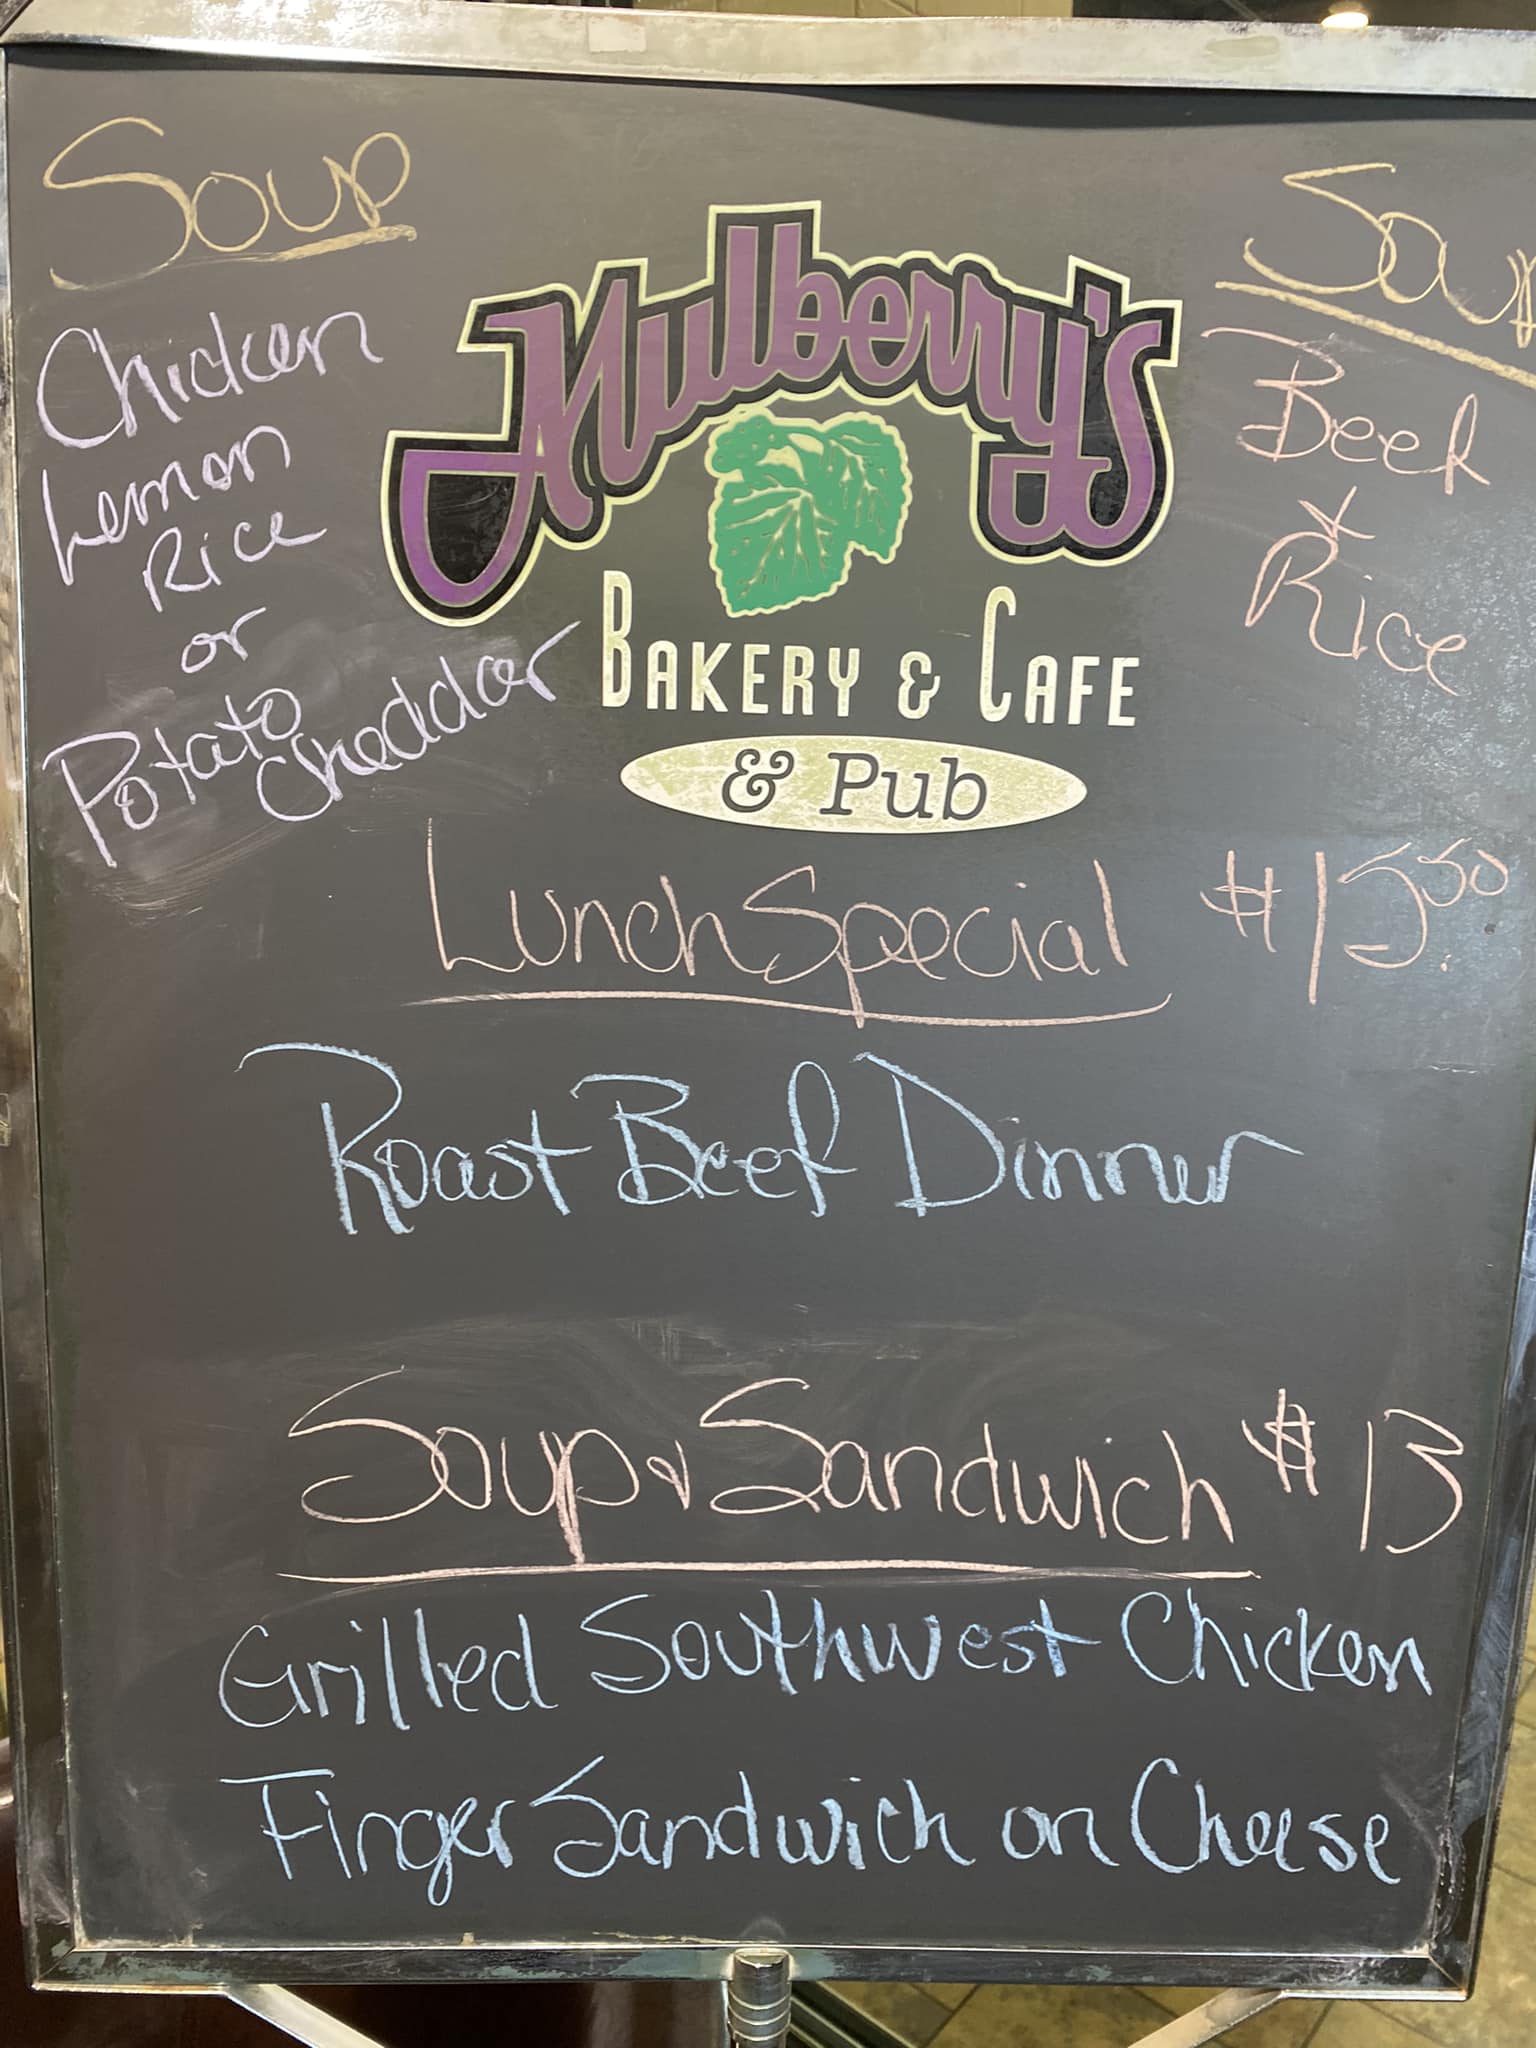 Soup
Chicken
Lemon
Rice
or
Potato
Cheddar
Mulberry's
BAKERY & CAFE
& Pub
Beef
&
Rice
Lunch Special $15.50
Roast Beef Dinner
Soup & Sandwich $13
Grilled Southwest Chicken
Finger Sandwich on Cheese